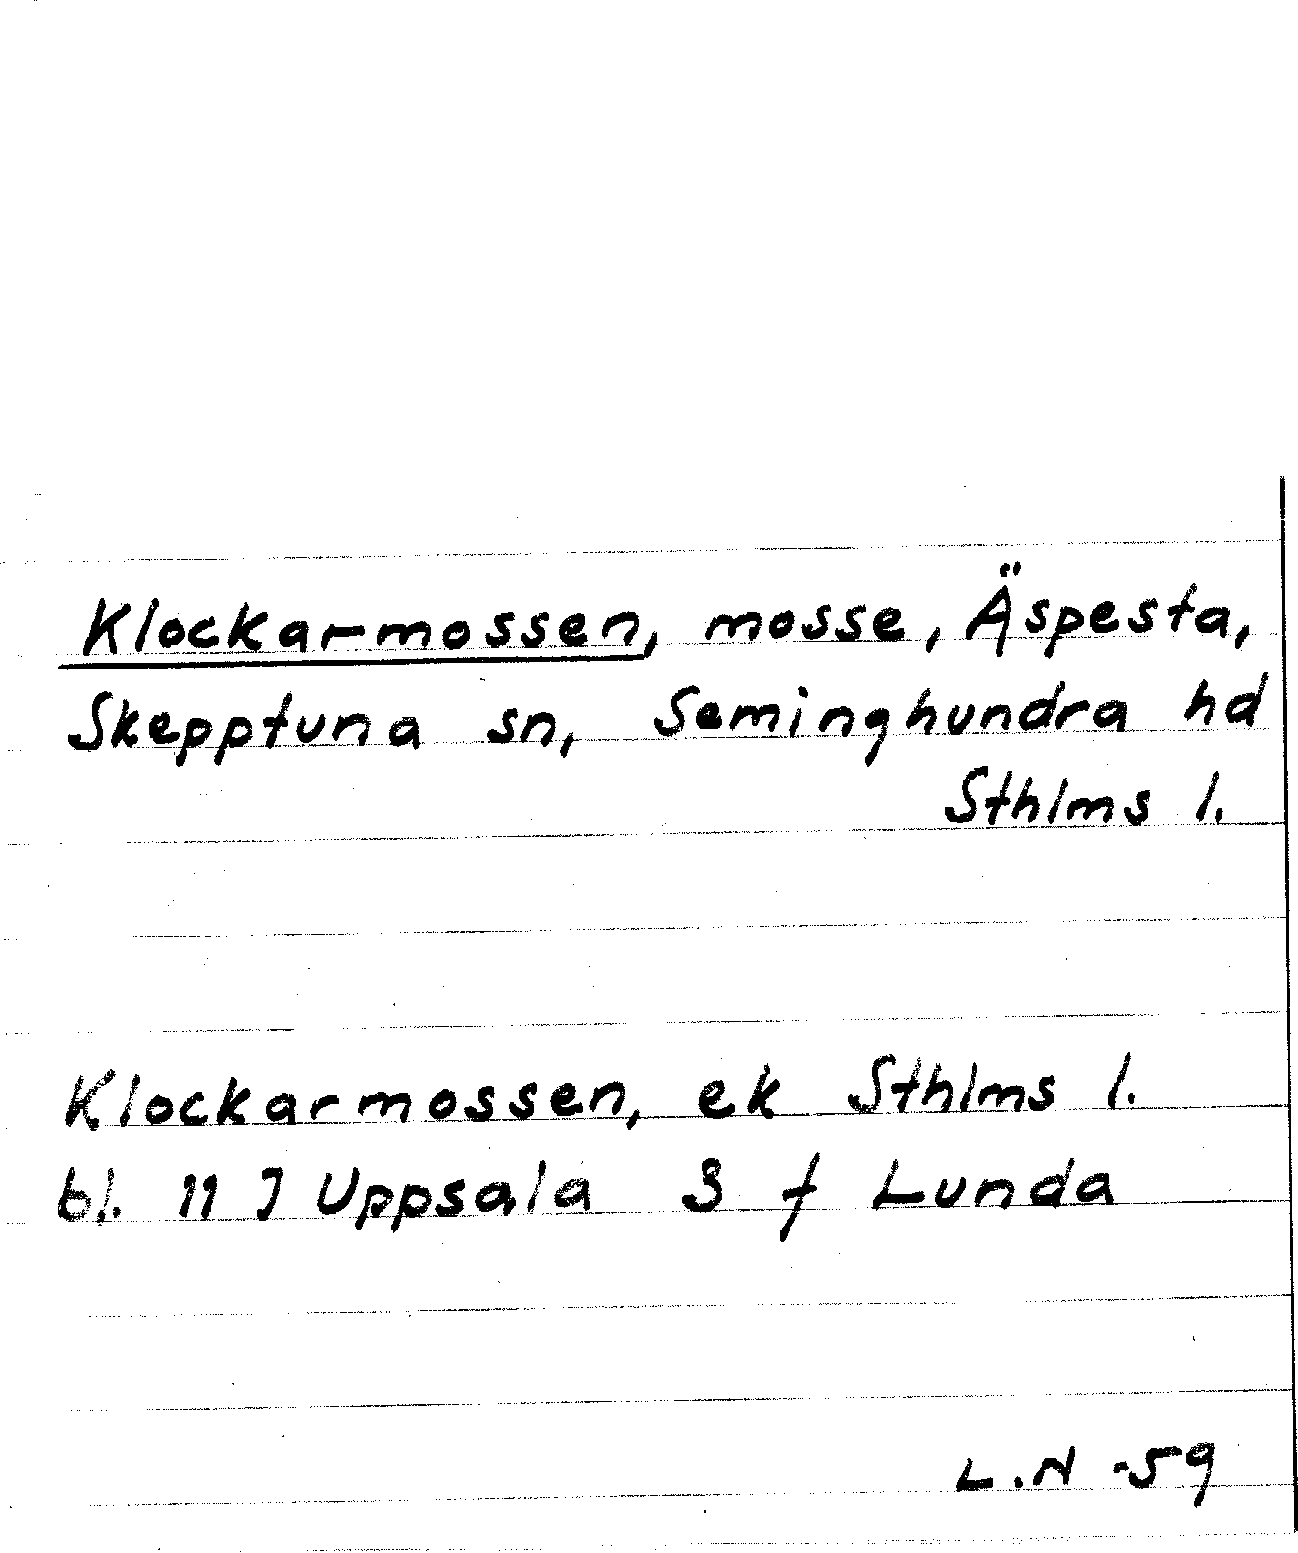 Klockarmossen, mosse, Äspesta,
Skepptuna sn, Seminghundra hd
Sthlms l.
Klockarmossen, ek Sthlms l.
bl. 11 I Uppsala S f Lunda
L.N -59